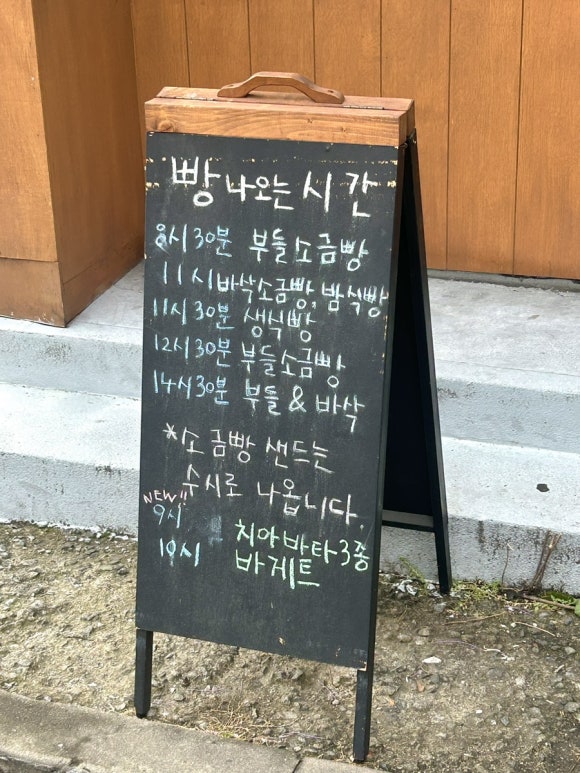 빵 나오는 시간
8시 30분 부들소금빵
11시 바삭소금빵, 밤식빵
11시 30분 생식빵
12시 30분 부들소금빵
14시 30분 부들 & 바삭
*소금빵 샌드는
수시로 나옵니다.
NEW!!
9시 치아바타 3종
10시 바게트